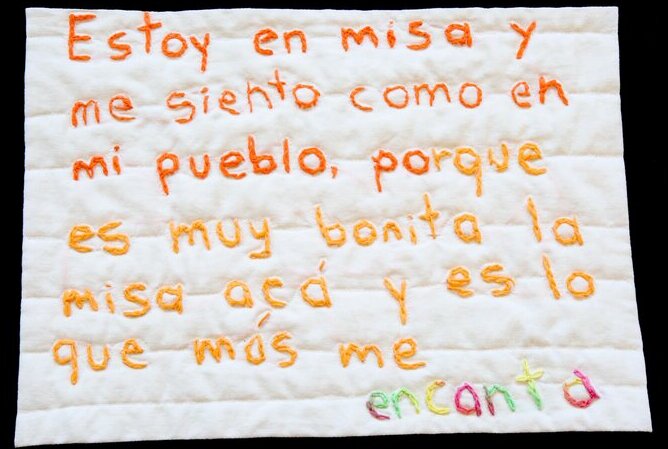 Estoy en misa y
me siento como en
mi pueblo, porque
es muy bonita la
misa acá y es lo
que más me
encanta